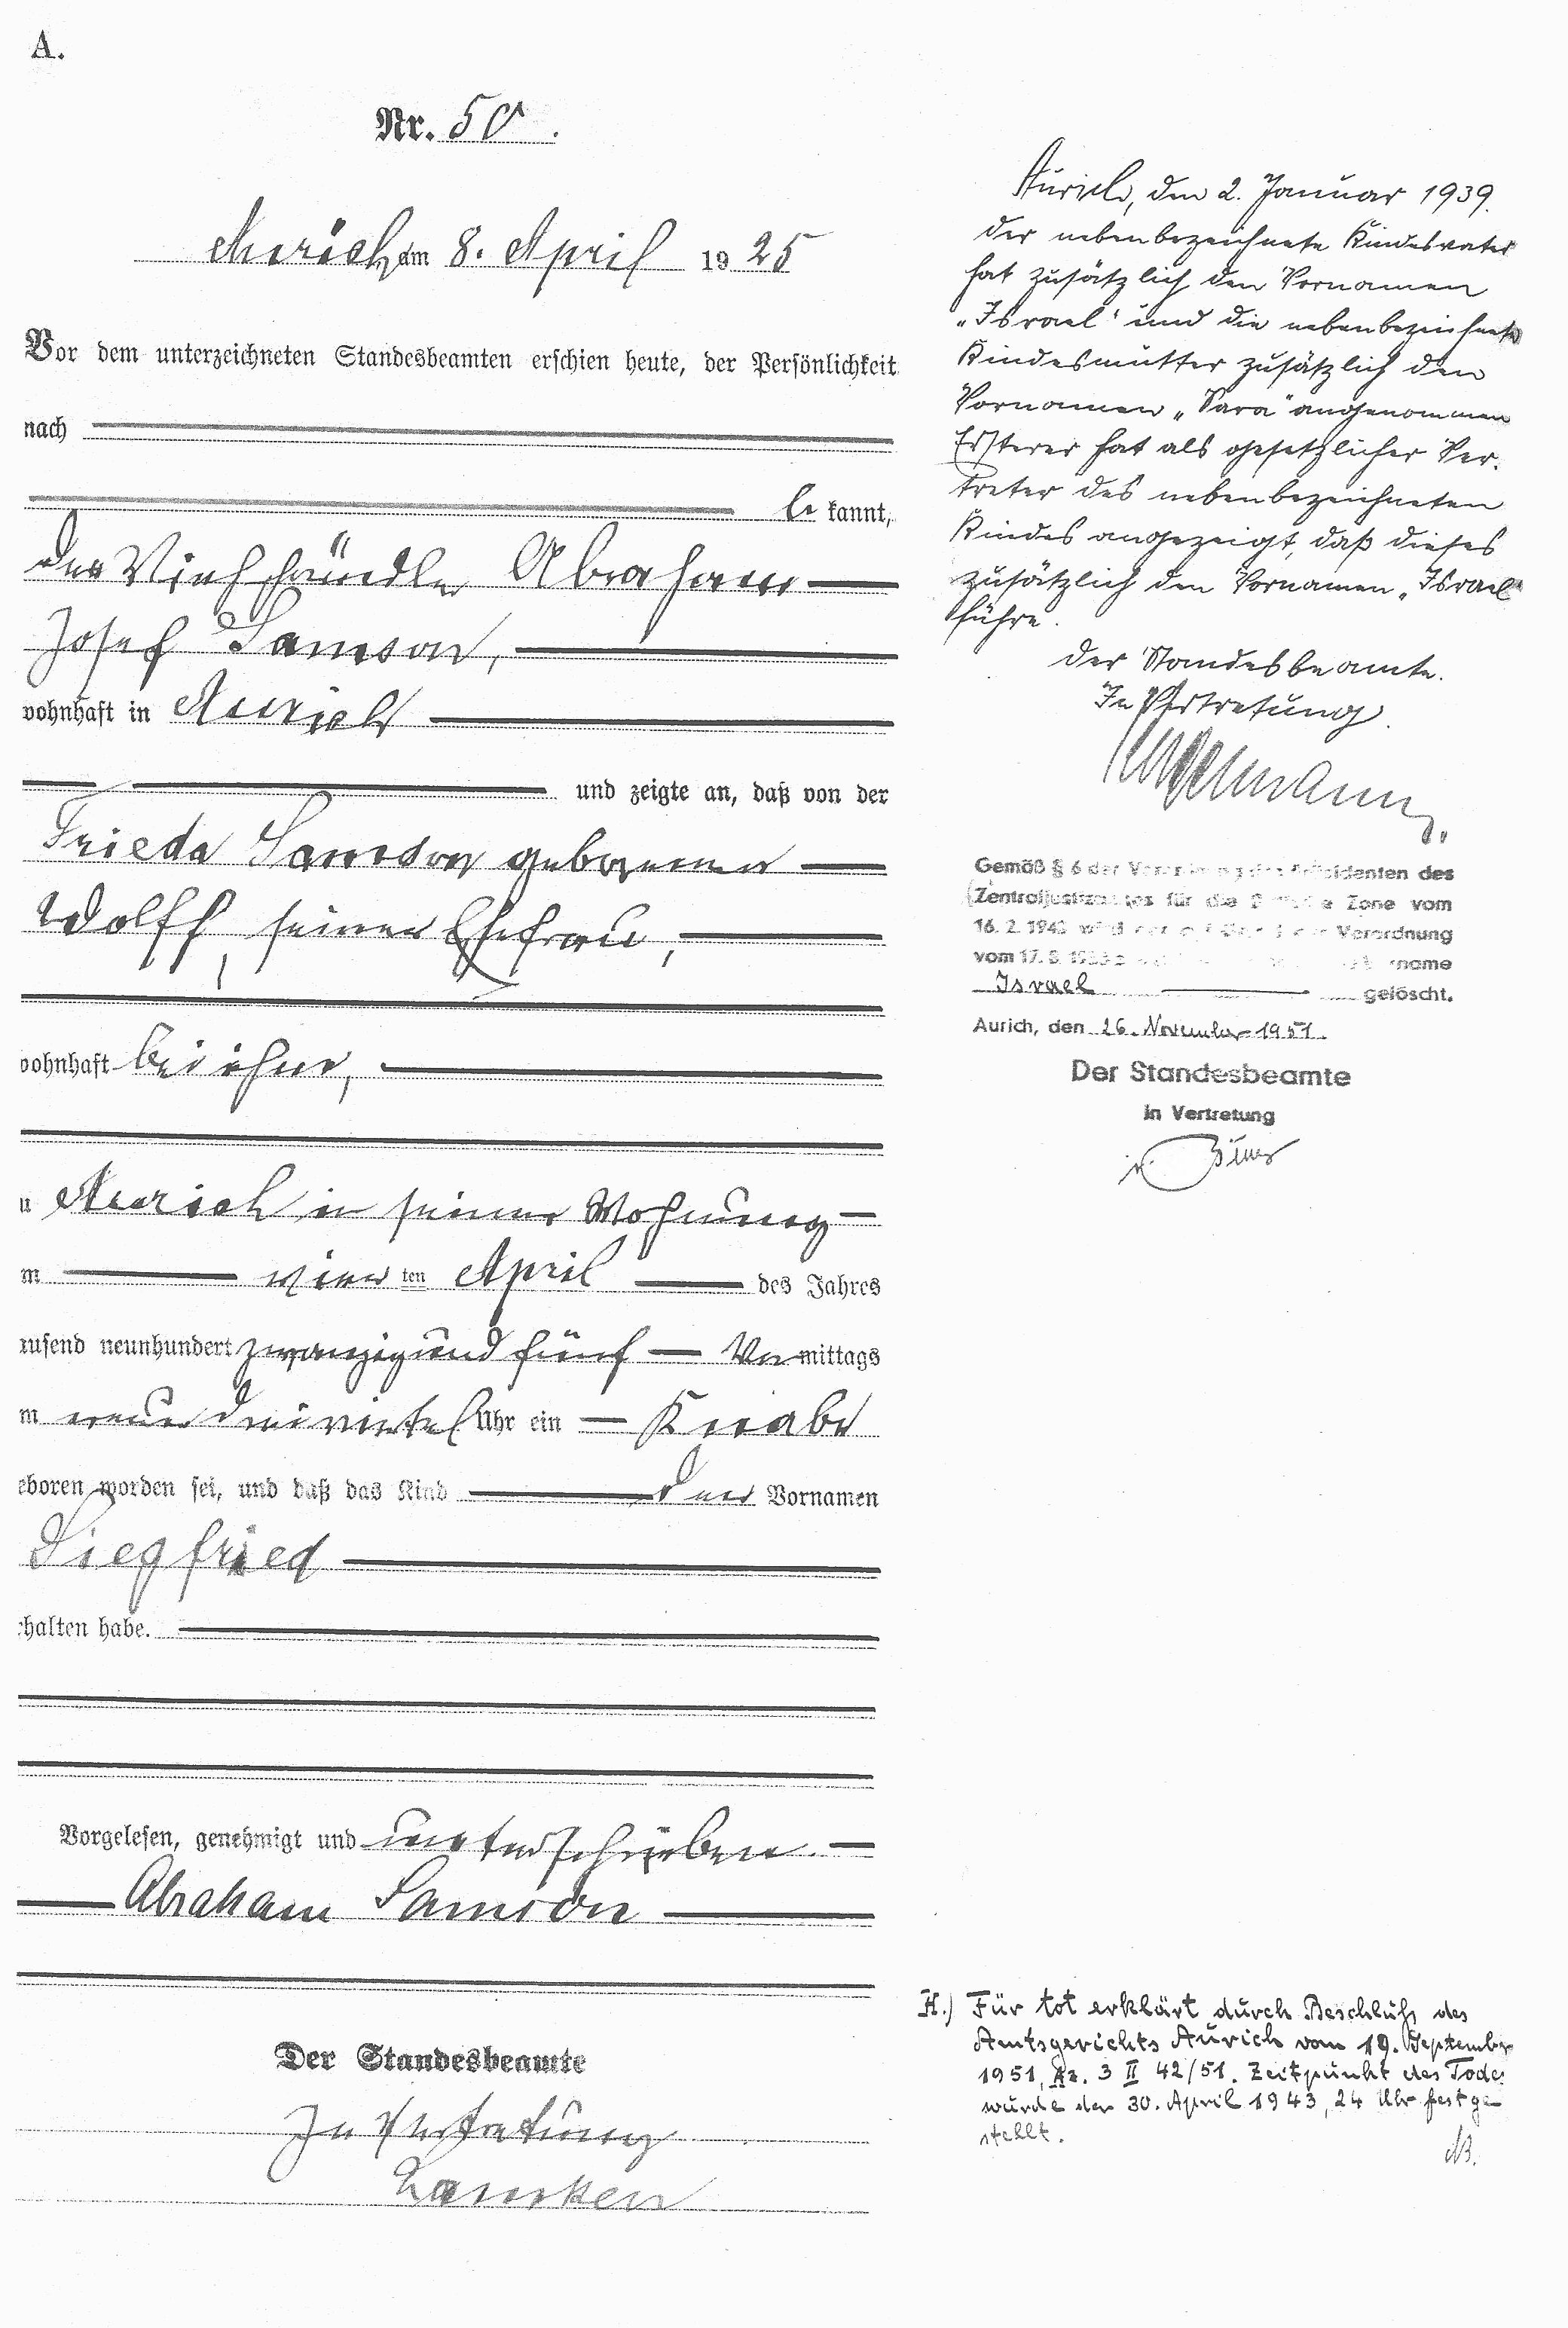 A.
Nr. 50.
Aurich, am 8. April 1925
Vor dem unterzeichneten Standesbeamten erschien heute, der Persönlichkeit
nach
be kannt,
der Viehhändler Abraham
Josef Samson,
wohnhaft in Aurich
und zeigte an, daß von der
Frieda Samson geborenen
Wolff, seiner Ehefrau,
wohnhaft bei ihm,
u Aurich in seiner Wohnung
m vier ten April des Jahres
usend neunhundert zwanzigundfünf Vormittags
m neun dreiviertel Uhr ein Knabe
eboren worden sei, und daß das Kind den Vornamen
Siegfried
halten habe.
Vorgelesen, genehmigt und unterschrieben.
Abraham Samson
Der Standesbeamte
In Vertretung
Aurich, den 2. Januar 1939.
Der nebenbezeichnete Kindesvater
hat zusätzlich den Vornamen
„Israel“ und die nebenbezeichnete
Kindesmutter zusätzlich den
Vornamen „Sara“ angenommen
Ersterer hat als gesetzlicher Ver-
treter des nebenbezeichneten
Kindes angezeigt, daß dieses
zusätzlich den Vornamen „Israel“
führe.
Der Standesbeamte.
In Vertretung.
Gemäß § 6 der Verordnung des Präsidenten des
Zentraljustizamtes für die Britische Zone vom
16. 2. wird der Verordnung
vom 17. 8.
Israel gelöscht.
Aurich, den 26. November 1951.
Der Standesbeamte
in Vertretung
H.) Für tot erklärt durch Beschluß des
Amtsgerichts Aurich vom 19. September
1951, Az. 3 II 42/51. Zeitpunkt des Todes
wurde der 30. April 1943, 24 Uhr festge-
stellt.